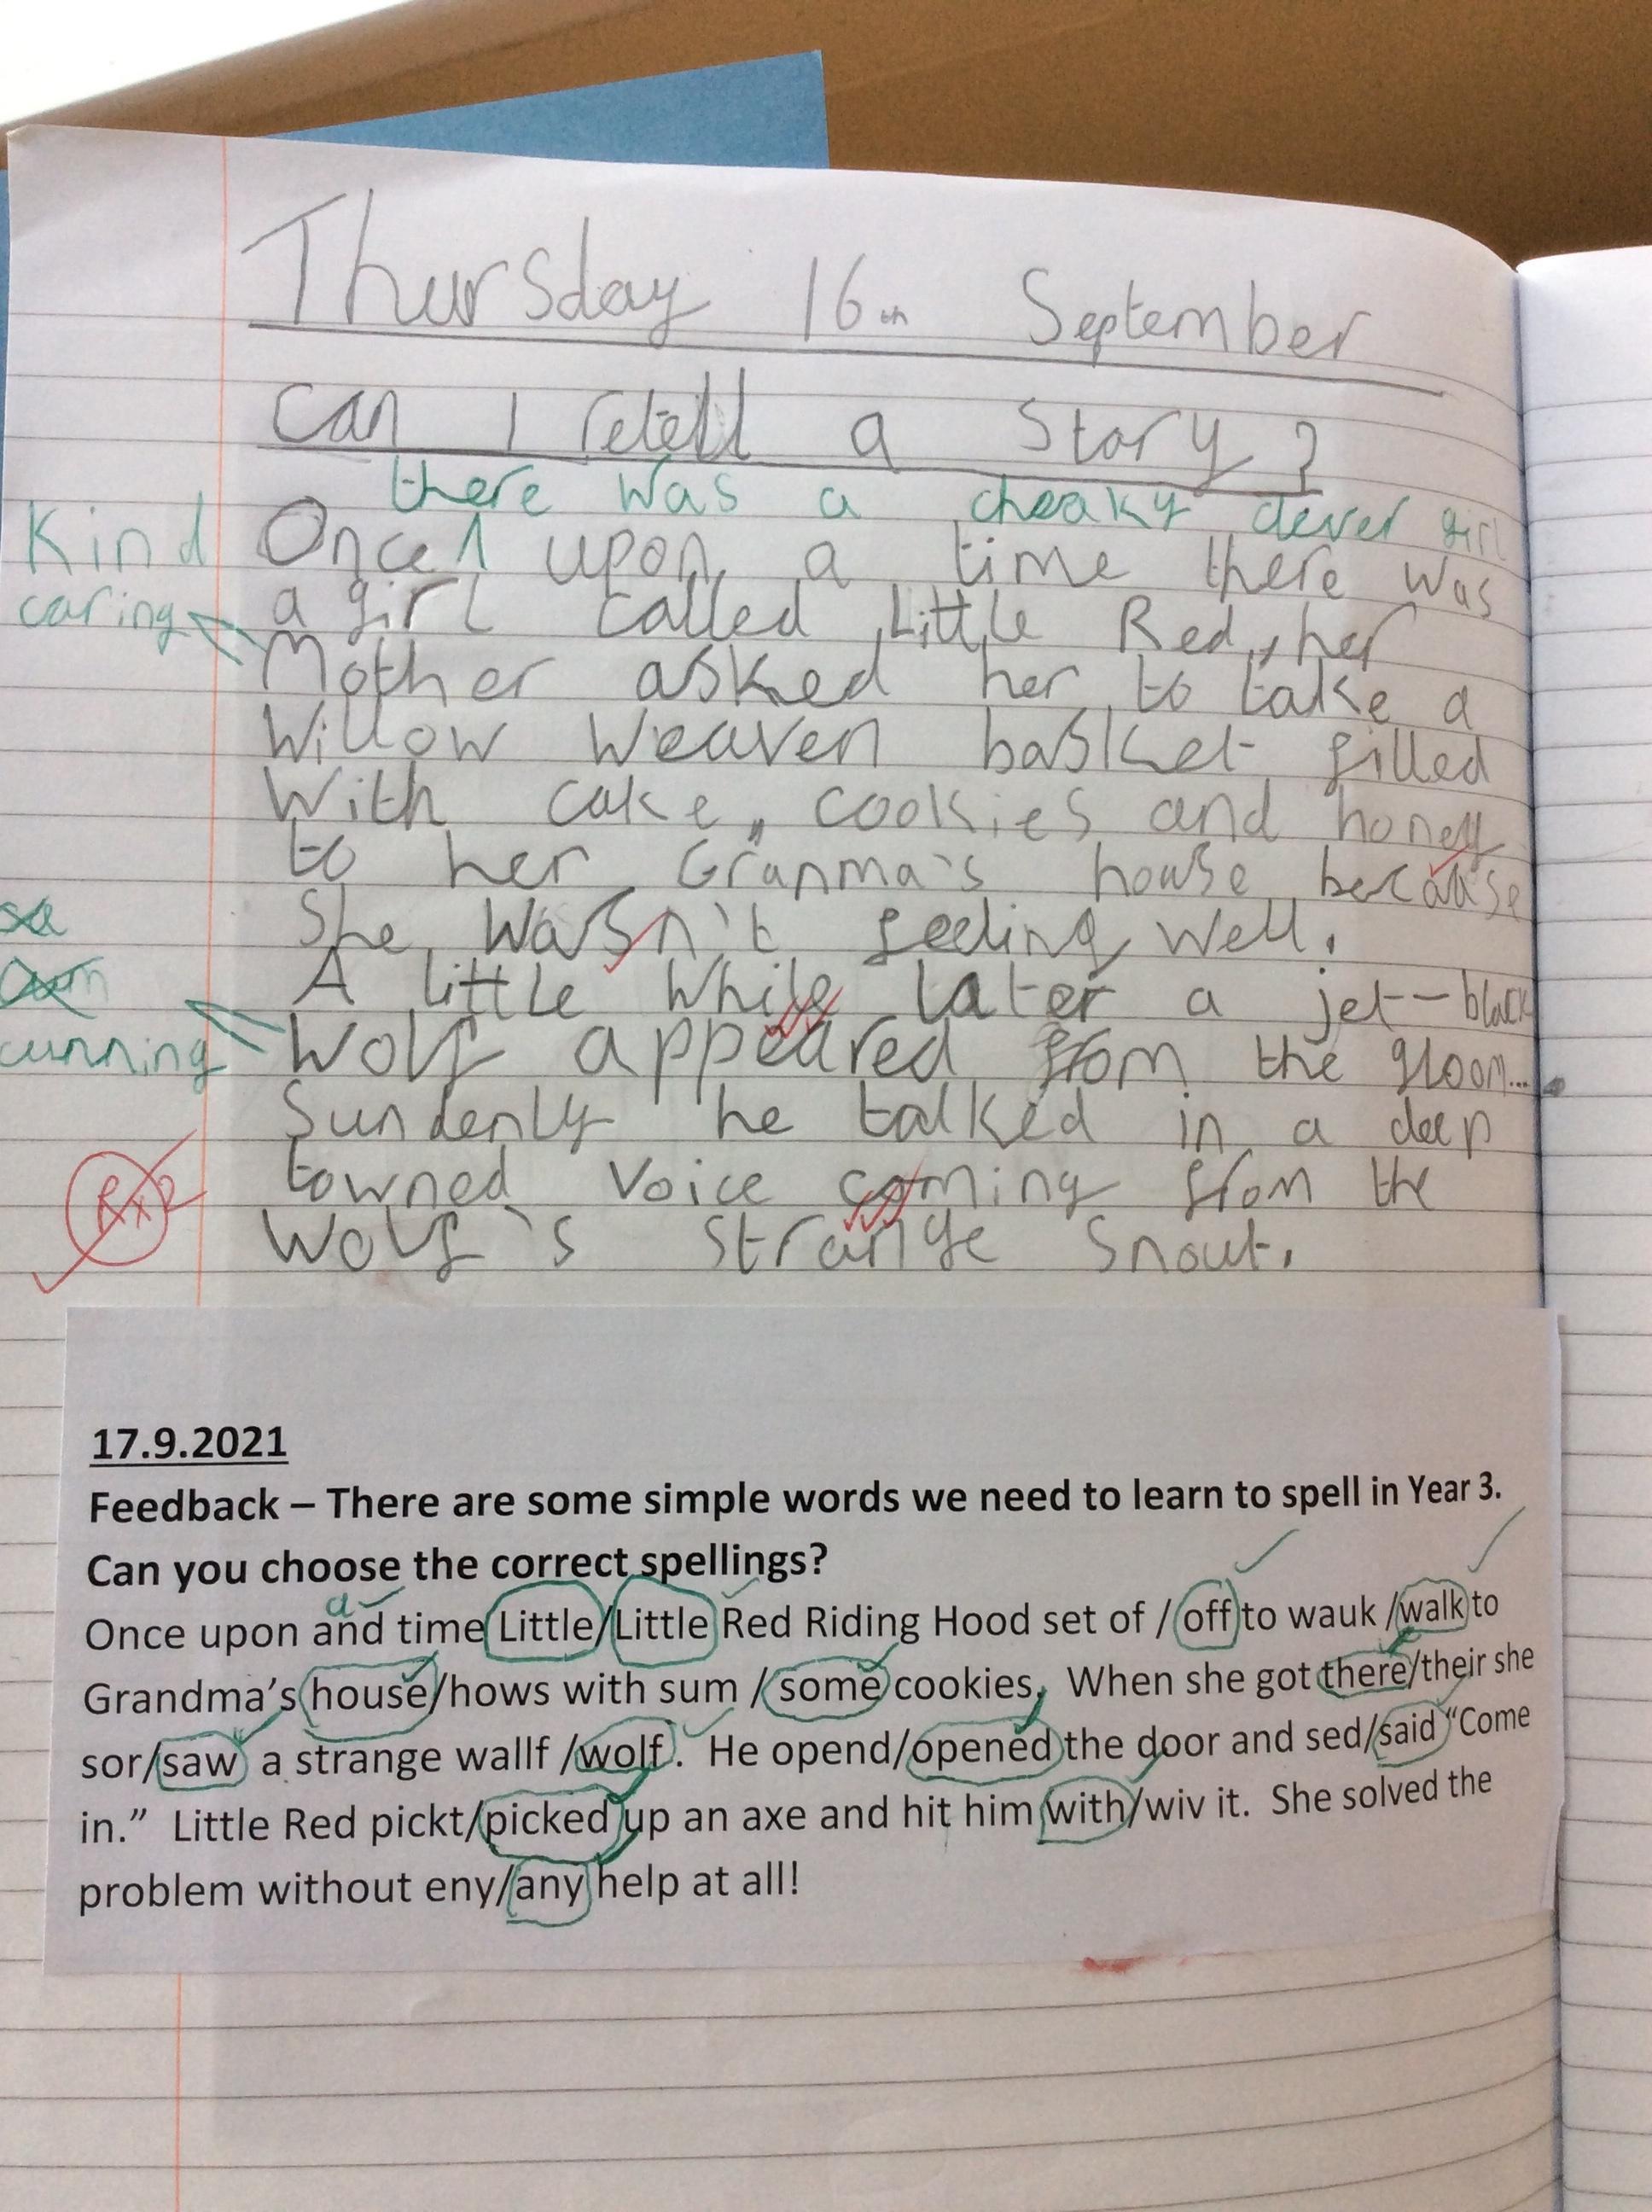 Thursday 16th September
Can I retell a Story?
there was a cheaky clever girl
Kind
Once upon a time there was
caring
a girl called Little Red, her
Mother asked her to take a
Willow Weaven basket filled
With cake, cookies and honey
to her Granma's house because
She wasn't feeling well.
A little while later a jet-black
Wolf appeared from the gloom...
cunning
Sundenly he talked in a deep
towned Voice coming from the
Wolf's strange Snout.
17.9.2021
Feedback – There are some simple words we need to learn to spell in Year 3.
Can you choose the correct spellings?
a
Once upon and time Little/Little Red Riding Hood set of / off to wauk /walk to
Grandma's house/hows with sum / some cookies. When she got there/their she
sor/saw a strange wallf /wolf. He opend/opened the door and sed/said "Come
in." Little Red pickt/picked up an axe and hit him with/wiv it. She solved the
problem without eny/any help at all!